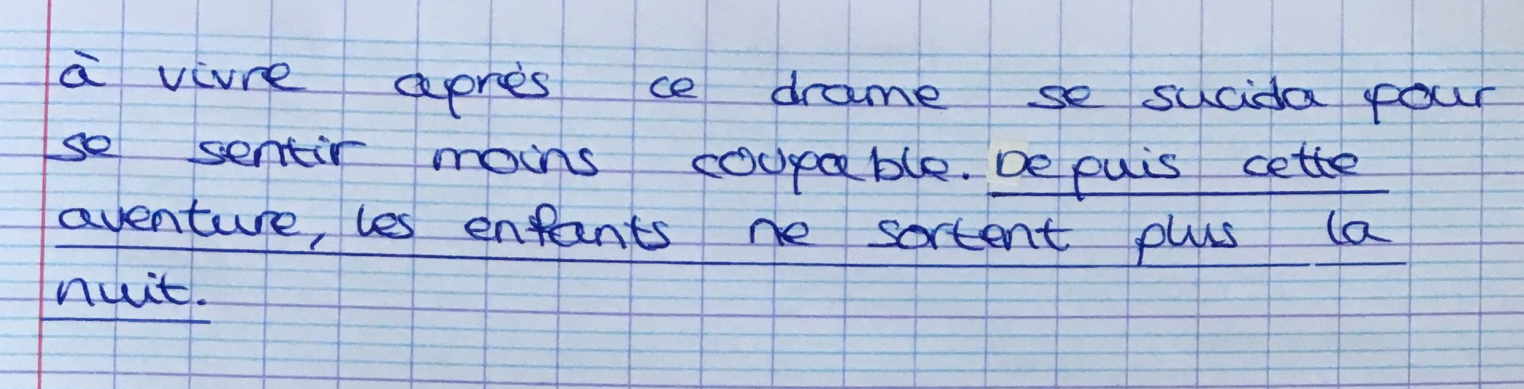 à vivre après ce drame se sucida pour
se sentir moins coupable. Depuis cette
aventure, les enfants ne sortent plus la
nuit.